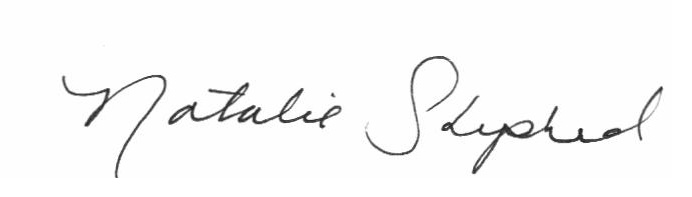 Natalie Shepherd